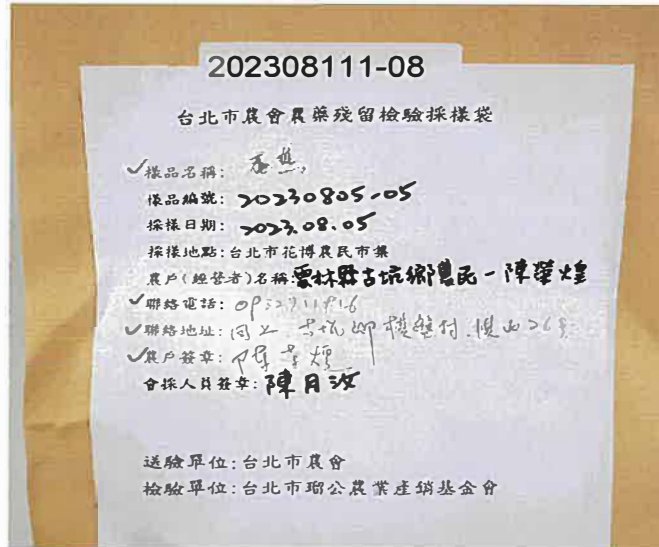 202308111-08
台北市農會農藥殘留檢驗採樣袋
✓樣品名稱: 香蕉
樣品編號: 20230805-05
採樣日期: 2023.08.05
採樣地點:台北市花博農民市集
農戶(經營者)名稱:雲林縣古坑鄉農民-陳榮煌
✓聯絡電話:
✓聯絡地址: 同上 古坑鄉
✓農戶簽章: 陳榮煌
會採人員簽章: 陳月汝
送驗單位:台北市農會
檢驗單位:台北市瑠公農業產銷基金會